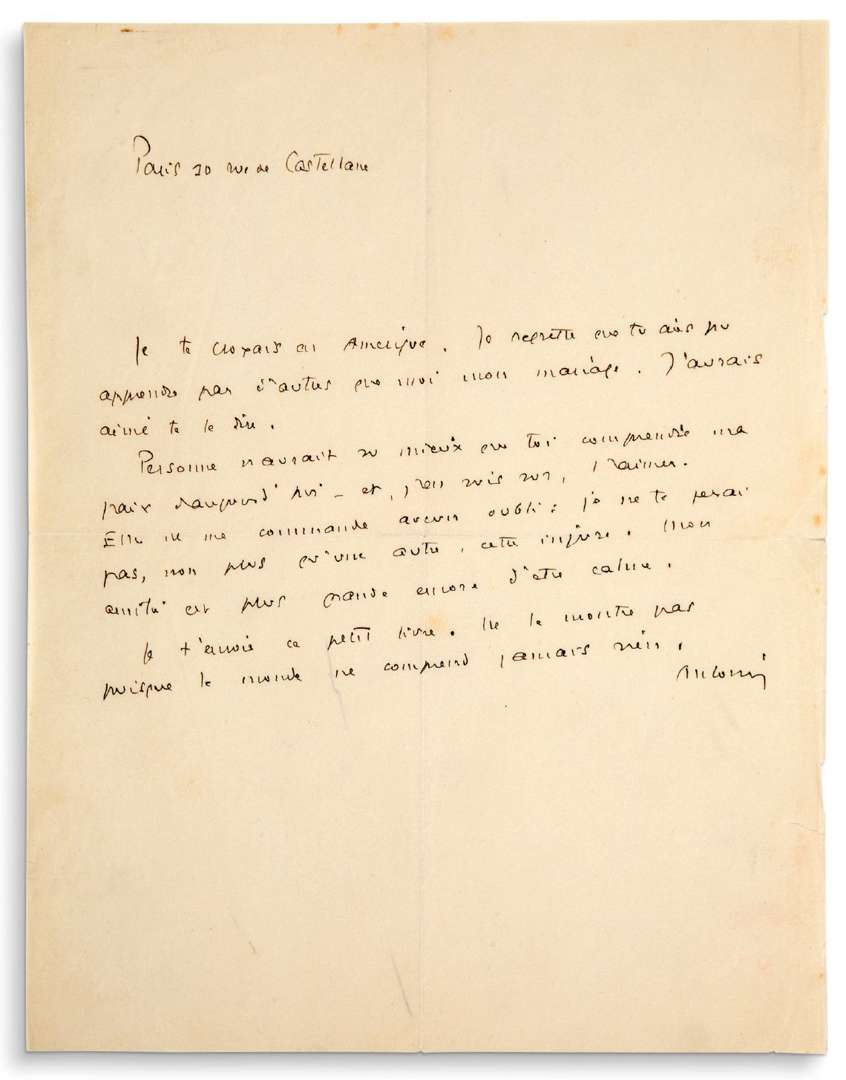 Paris 20 rue de Castellane
Je te croyais en Amérique. Je regrette que tu aies pu
apprendre par d'autres que moi mon mariage. J'aurais
aimé te le dire.
Personne n'aurait su mieux que toi comprendre ma
paix d'aujourd'hui – et, j'en suis sûr, l'aimer.
Elle ne me commande aucun oubli : je ne te ferai
pas, non plus qu'une autre, cette injure. Mon
amitié est plus grande encore d'être calme.
Je t'envoie ce petit livre. Ne le montre pas
puisque le monde ne comprend jamais rien.
Antoine